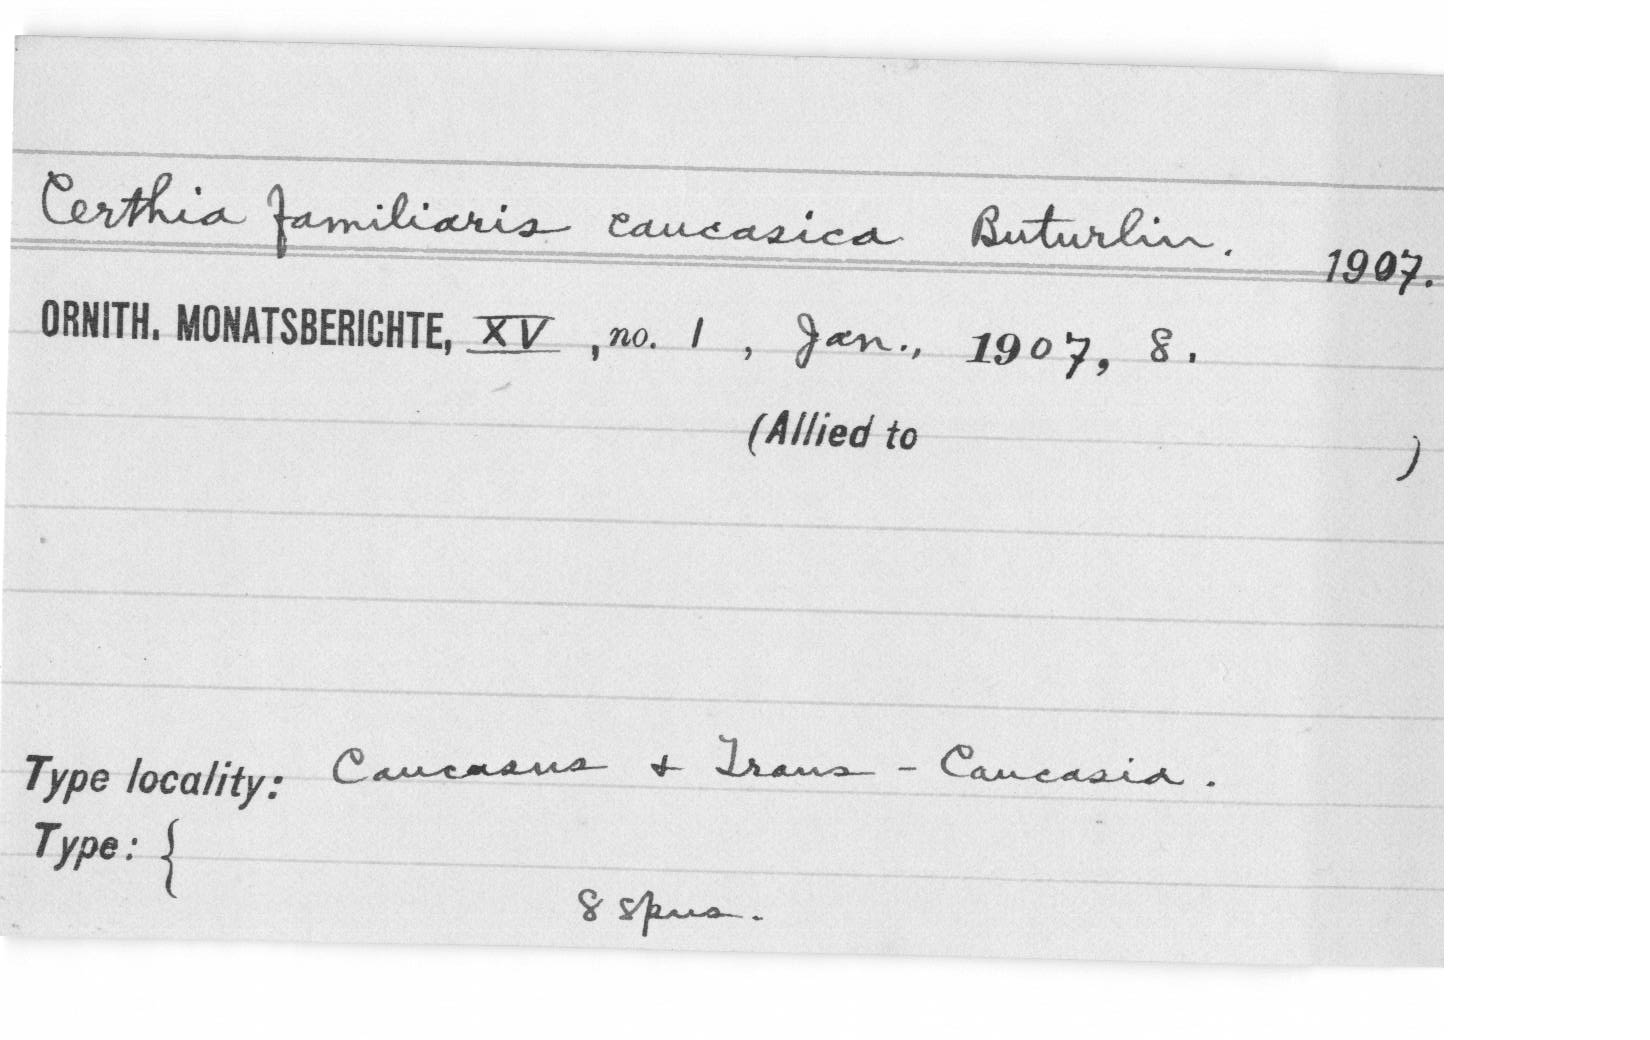 Certhia familiaris caucasica Buturlin. 1907.
ORNITH. MONATSBERICHTE, XV, no. 1, Jan., 1907, 8.
(Allied to )
Type locality: Caucasus + Trans-Caucasia.
Type: {
8 spns.